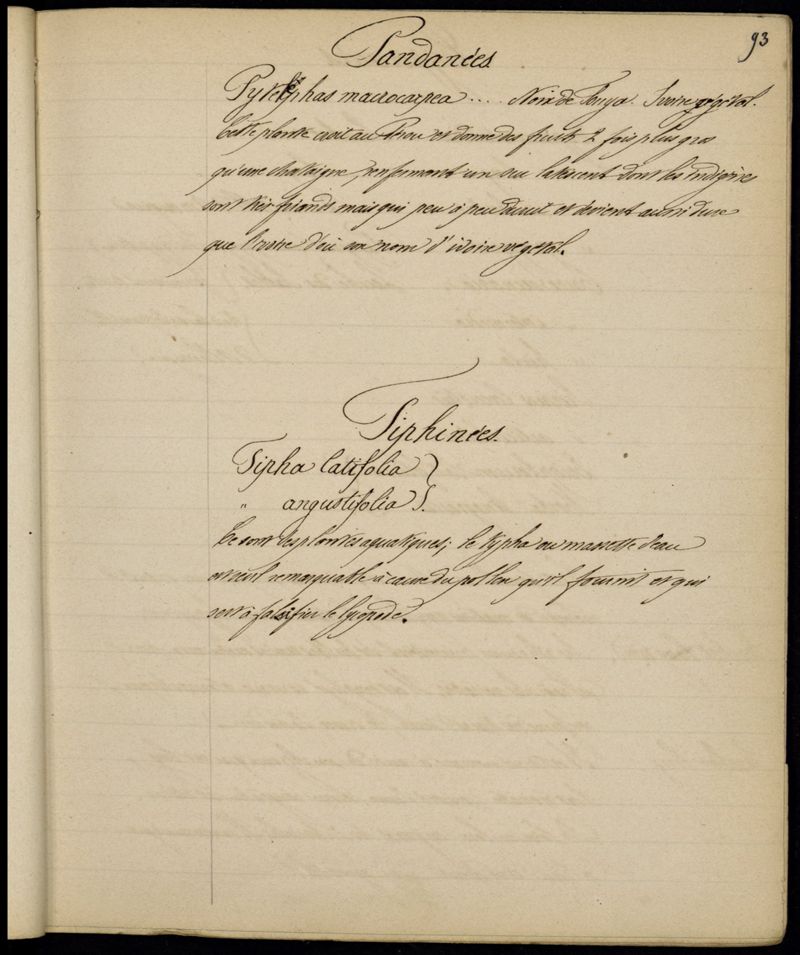 93
Pandanées
Pytelephas macrocarpea .... Noix de Tonga. Ivoire végétal.
Cette plante croit au Pérou et donne des fruits 2 fois plus gros
qu'une chataigne, renfermant un suc latescent dont les Indigènes
sont très friands mais qui peu à peu durcit et devient aussi dure
que l'ivoire d'où son nom d'ivoire végétal.
Tiphinées.
Tipha latifolia }
" angustifolia }.
Ce sont des plantes aquatiques; le typha ou massette d'eau
est seul remarquable à cause du pollen qu'il fournit et qui
sert à falsifier le lycopode.